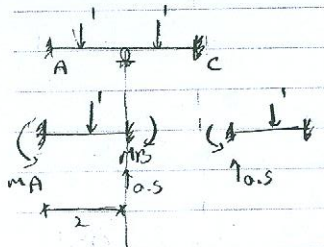 1 1
A C
1 1
mA mB
0.5 0.5
2